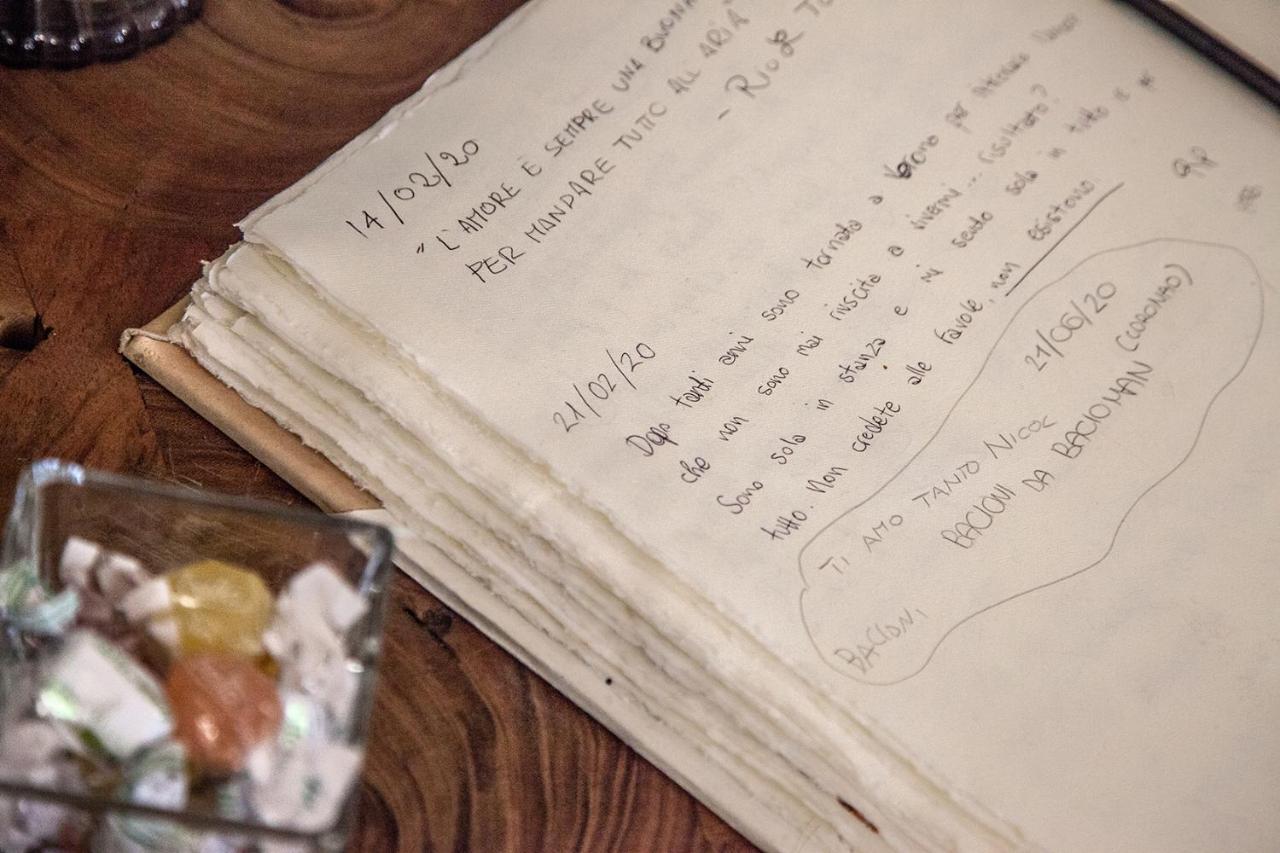 14/02/20
"L'AMORE È SEMPRE UNA BUONA
PER MANDARE TUTTO ALL'ARIA"
21/02/20
Dopo tanti anni sono tornata a Verona per
che non sono mai riuscita a viverni... risultato?
Sono sola in stanza e mi sento sola in tutto e
tutto. Non credete alle favole, non esistono.
21/06/20
TI AMO TANTO NICOL
BACIONI DA BACIOMAN
BACIONI